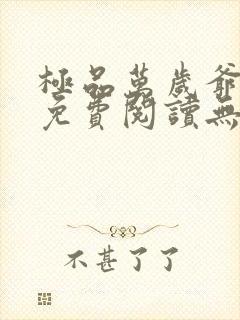 極品萬歲爺
免費閱讀無
不甚了了